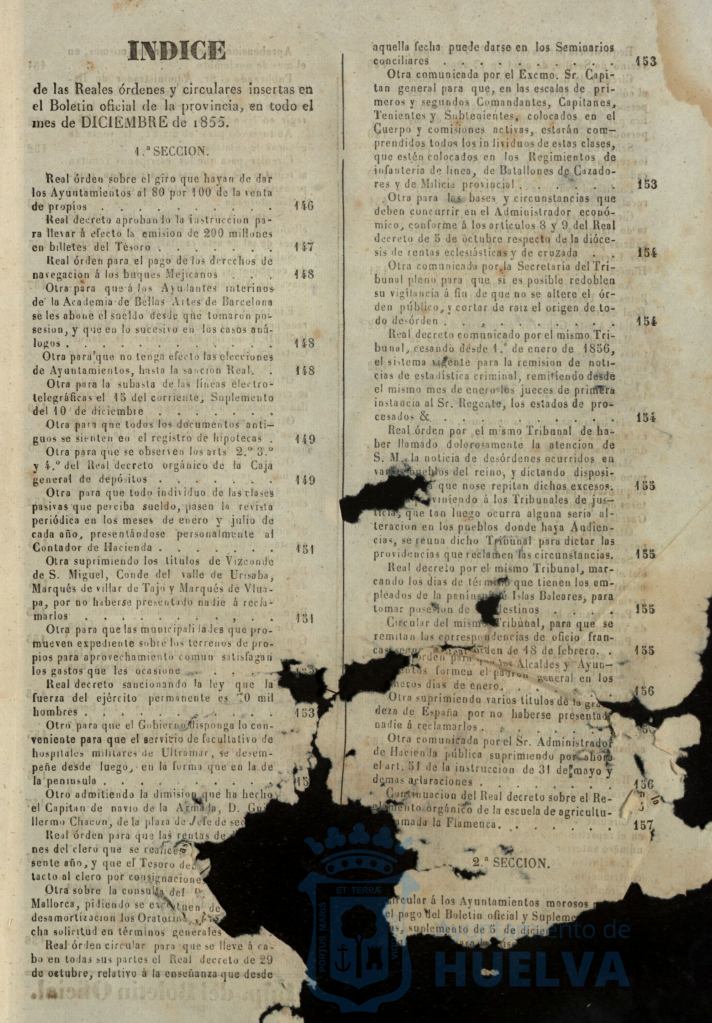 INDICE
de las Reales órdenes y circulares insertas en
el Boletin oficial de la provincia, en todo el
mes de DICIEMBRE de 1855.
1.ª SECCION.
Real órden sobre el giro que hayan de dar
los Ayuntamientos al 80 por 100 de la venta
de propios . . . . . . . . . 146
Real decreto aprobando la instruccion pa-
ra llevar á efecto la emision de 200 millones
en billetes del Tesoro . . . . . . 147
Real órden para el pago de los derechos de
navegacion á los buques Mejicanos . . . 148
Otra para que á los Ayudantes interinos
de la Academia de Bellas Artes de Barcelona
se les abone el sueldo desde que tomaron po-
sesion, y que en lo sucesivo en los casos aná-
logos . . . . . . . . . . 148
Otra para que no tenga efecto las elecciones
de Ayuntamientos, hasta la sancion Real. . 148
Otra para la subasta de las líneas electro-
telegráficas el 15 del corriente, Suplemento
del 10 de diciembre . . . . . .
Otra para que todos los documentos anti-
guos se sienten en el registro de hipotecas . 149
Otra para que se observen los arts 2.º 3.º
y 4.º del Real decreto orgánico de la Caja
general de depósitos . . . . . . 149
Otra para que todo individuo de las clases
pasivas que perciba sueldo, pasen la revista
periódica en los meses de enero y julio de
cada año, presentándose personalmente al
Contador de Hacienda . . . . . . 151
Otra suprimiendo los titulos de Vizconde
de S. Miguel, Conde del valle de Urisaba,
Marqués de villar de Tajo y Marqués de
pa, por no haberse presentado nadie á recla-
marlos . . . . . . . . . 151
Otra para que las municipalidades que pro-
mueven expediente sobre los terrenos de pro-
pios para aprovechamiento comun satisfagan
los gastos que les ocasione
Real decreto sancionando la ley que la
fuerza del ejército permanente es 70 mil
hombres . . . . . . . . . 153
Otro para que el Gobierno disponga lo con-
veniente para que el servicio de facultativo de
hospitales militares de Ultramar, se desem-
peñe desde luego, en la forma que en la de
la peninsula . . . . . . . .
Otro admitiendo la dimision que ha hecho
el Capitan de navio de la Armada, D. Gui
llermo Chacon, de la plaza de Jefe de
Real órden para que las rentas de
nes del clero que se
sente año, y que el Tesoro
tacto al clero por consignaciones
Otra sobre la consulta del
Mallorca, pidiendo se
desamortizacion los
cha solicitud en términos generales
Real órden circular para que se lleve á ca-
bo en todas sus partes el Real decreto de 29
de octubre, relativo á la enseñanza que desde
aquella fecha puede darse en los Seminarios
conciliares . . . . . . . . . 153
Otra comunicada por el Excmo. Sr. Capi-
tan general para que, en las escalas de pri-
meros y segundos Comandantes, Capitanes,
Tenientes y Subtenientes, colocados en el
Cuerpo y comisiones activas, estarán com-
prendidos todos los individuos de estas clases,
que estén colocados en los Regimientos de
infanteria de linea, de Batallones de Cazado-
res y de Milicia provincial . . . . . 153
Otra para las bases y circunstancias que
deben concurrir en el Administrador econó-
mico, conforme á los artículos 8 y 9 del Real
decreto de 5 de octubre respecto de la dióce-
sis de rentas eclesiásticas y de cruzada . . 154
Otra comunicada por la Secretaria del Tri-
bunal pleno para que si es posible redoblen
su vigilancia á fin de que no se altere el ór-
den público, y cortar de raiz el origen de to-
do desórden . . . . . . . . 154
Real decreto comunicado por el mismo Tri-
bunal, cesando desde 1.º de enero de 1856,
el sistema vigente para la remision de noti-
cias de estadística criminal, remitiendo desde
el mismo mes de enero los jueces de primera
instancia al Sr. Regente, los estados de pro-
cesados &. . . . . . . . . 154
Real órden por el mismo Tribunal de ha-
ber llamado dolorosamente la atencion de
S. M. la noticia de desórdenes ocurridos en
pueblos del reino, y dictando disposi-
que no se repitan dichos excesos. 155
viniendo á los Tribunales de jus-
ticia, que tan luego ocurra alguna seria al-
teracion en los pueblos donde haya Audien-
cias, se reuna dicho Tribunal para dictar las
providencias que reclamen las circunstancias. 155
Real decreto por el mismo Tribunal, mar-
cando los dias de término que tienen los em-
pleados de la peninsula é Islas Baleares, para
tomar posesion de destinos . . . . 155
Circular del mismo Tribunal, para que se
remitan las correspondencias de oficio fran-
órden de 18 de febrero. . 155
órden para Alcaldes y Ayun-
formen el padron general en los
dias de enero. . . . . . 156
Otra suprimiendo varios títulos de la gran
deza de España por no haberse presentado
nadie á reclamarlos . . . . .
Otra comunicada por el Sr. Administrador
de Hacienda pública suprimiendo por ahora
el art. 51 de la instruccion de 31 de mayo y
demas aclaraciones . . . . . . 156
Continuacion del Real decreto sobre el Re-
glamento orgánico de la escuela de agricultu-
llamada la Flamenca. . . . . . 157
2.ª SECCION.
Circular á los Ayuntamientos morosos
el pago del Boletin oficial y
suplemento de 5 de
PORTUS MARIS
ET TERRÆ
Ayuntamiento de
HUELVA